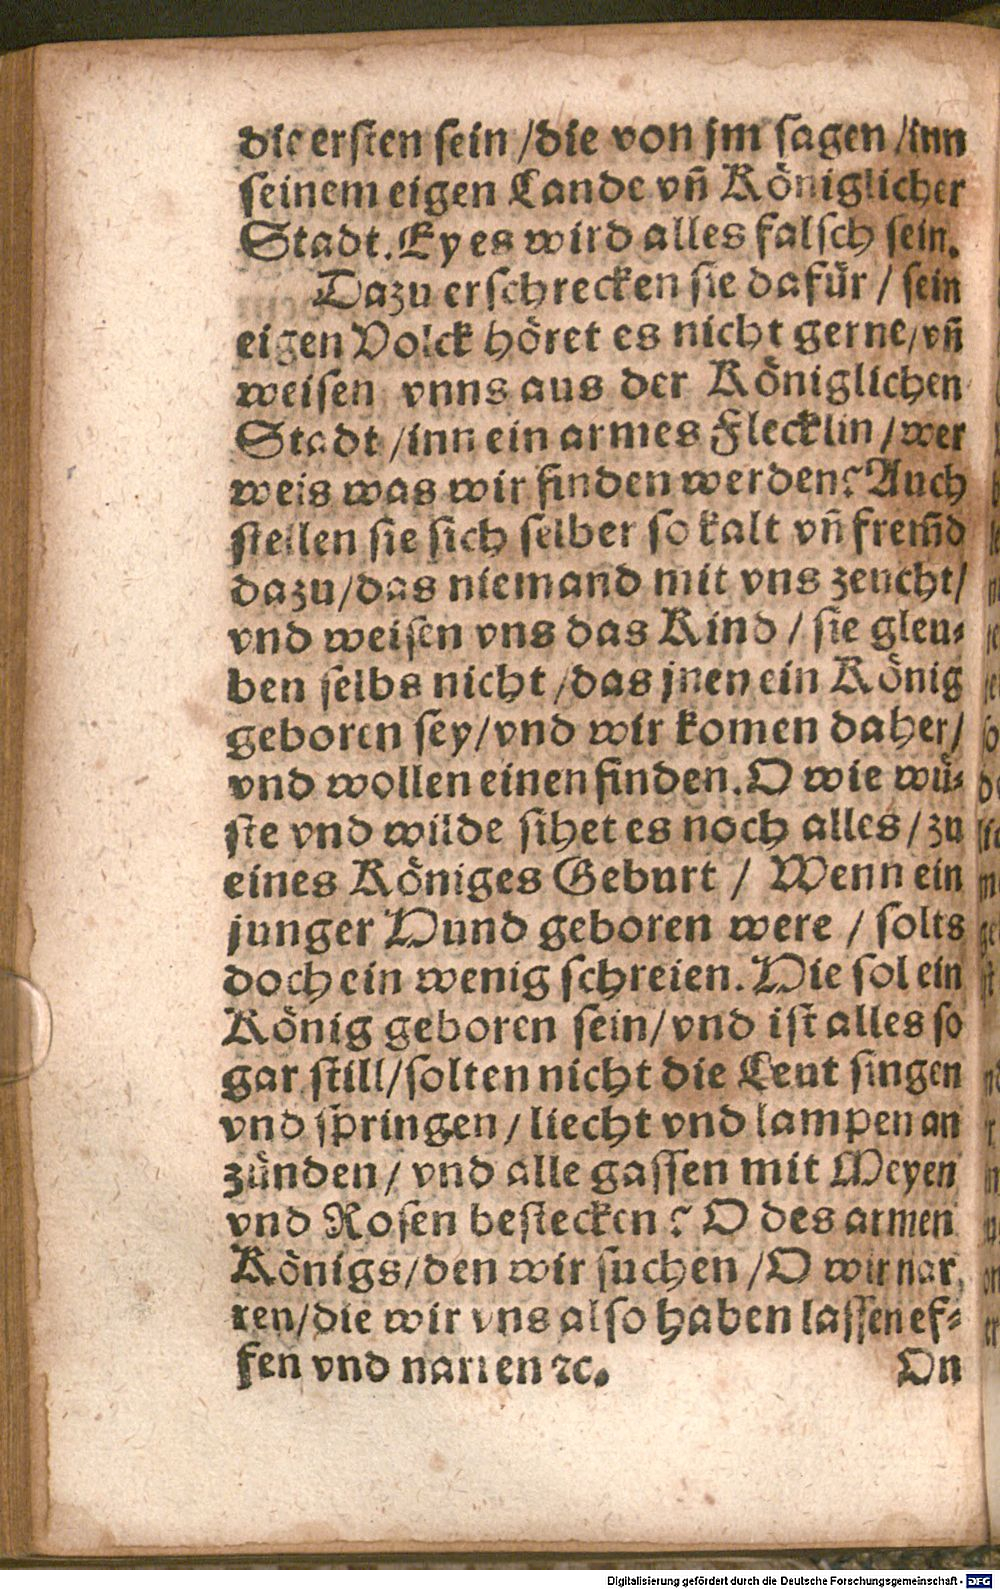 die ersten sein /die von jm sagen /inn
seinem eigen Lande vñ Königlicher
Stadt. Ey es wird alles falsch sein.
Dazu erschrecken sie dafür / sein
eigen Volck höret es nicht gerne/vñ
weisen vnns aus der Königlichen
Stadt /inn ein armes Flecklin /wer
weis was wir finden werden? Auch
stellen sie sich selber so kalt vñ frem̃d
dazu/das niemand mit vns zeucht/
vnd weisen vns das Kind / sie gleu⸗
ben selbs nicht /das jnen ein König
geboren sey/vnd wir komen daher/
vnd wollen einen finden. O wie wü⸗
ste vnd wilde sihet es noch alles/ zu
eines Königes Geburt / Wenn ein
junger Hund geboren were / solts
doch ein wenig schreien. Hie sol ein
König geboren sein/vnd ist alles so
gar still/solten nicht die Leut singen
vnd springen /liecht vnd lampen an
zünden/ vnd alle gassen mit Meyen
vnd Rosen bestecken? O des armen
Königs/den wir suchen /O wir nar,
ren/die wir vns also haben lassen ef⸗
fen vnd narren ꝛc. On
Digitalisierung gefördert durch die Deutsche Forschungsgemeinschaft - DFG